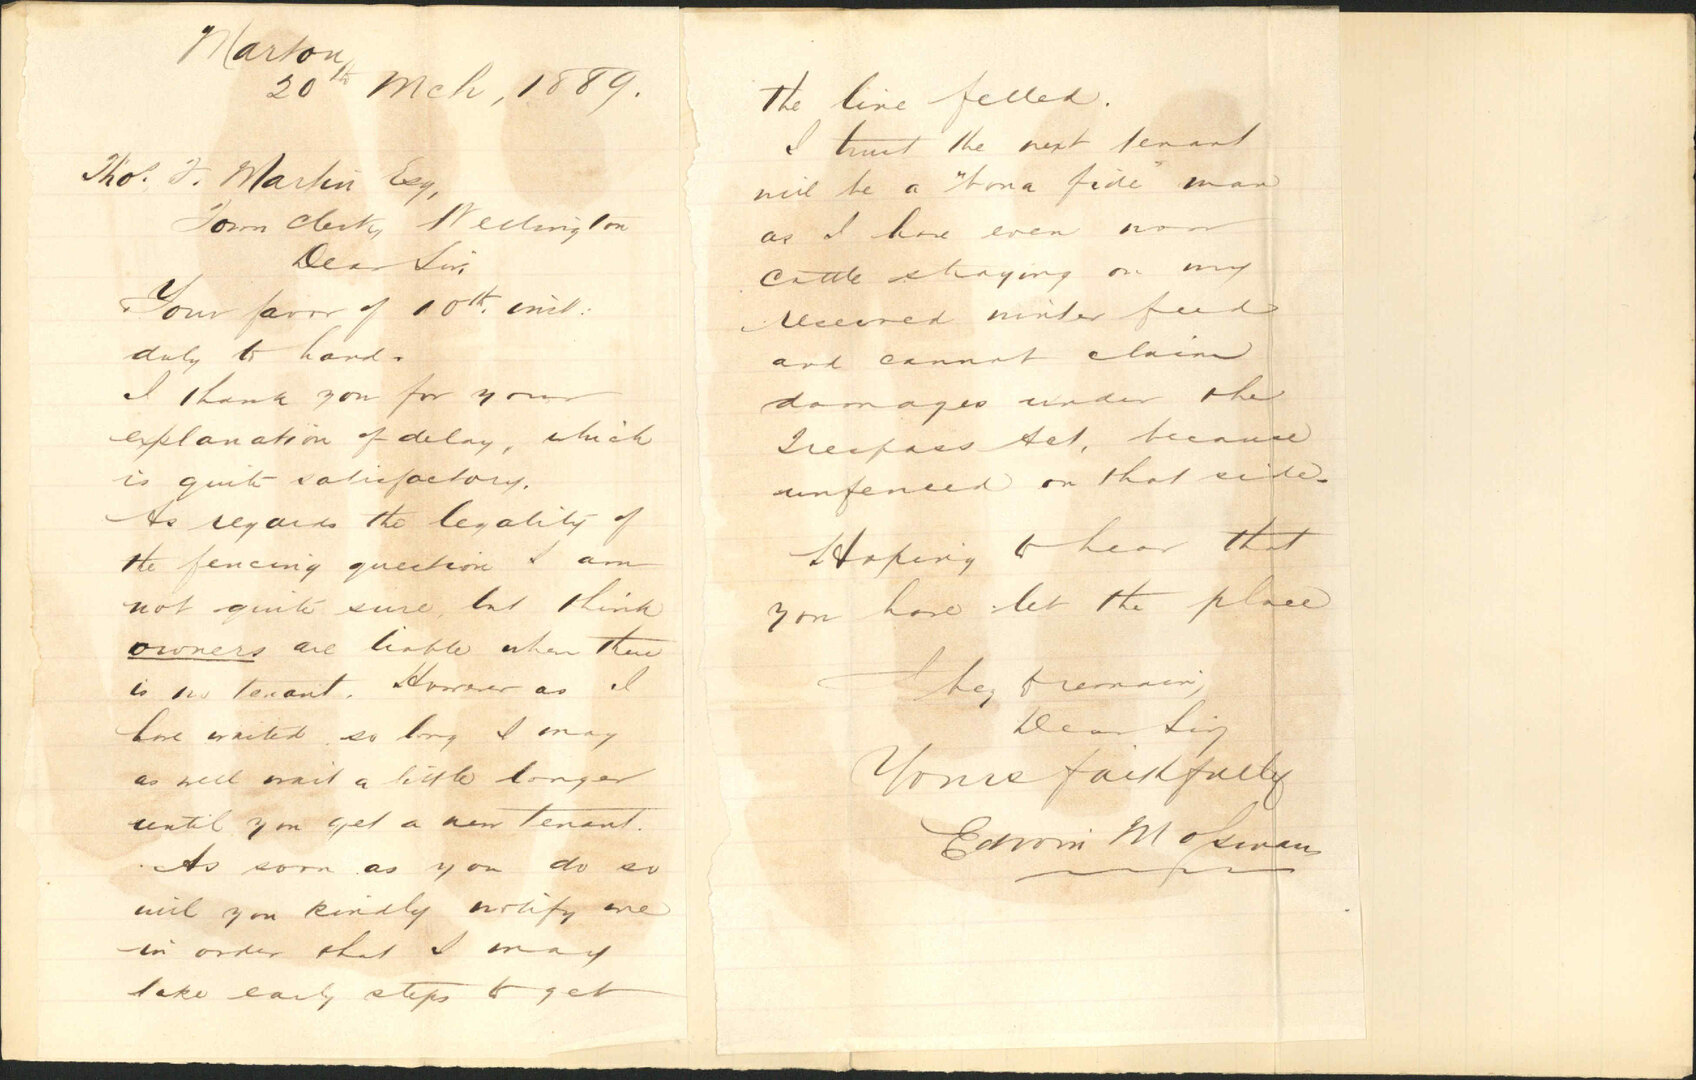 Marton,
20th Mch, 1889.
Thos. F. Martin Esq,
Town Clerk, Wellington
Dear Sir,
Your favor of 10th. inst:
duly to hand.
I thank you for your
explanation of delay, which
is quite satisfactory.
As regards the legality of
the fencing question I am
not quite sure, but think
owners are liable when there
is no tenant. However as I
have waited so long I may
as well wait a little longer
until you get a new tenant.
As soon as you do so
will you kindly notify me
in order that I may
take early steps to get
the line felled.
I trust the next tenant
will be a "bona fide" man
as I have even now
cattle straying on my
reserved winter feed
and cannot claim
damages under the
Trespass Act, because
unfenced on that side.
Hoping to hear that
you have let the place
I beg to remain,
Dear Sir,
Yours faithfully
Edwin M